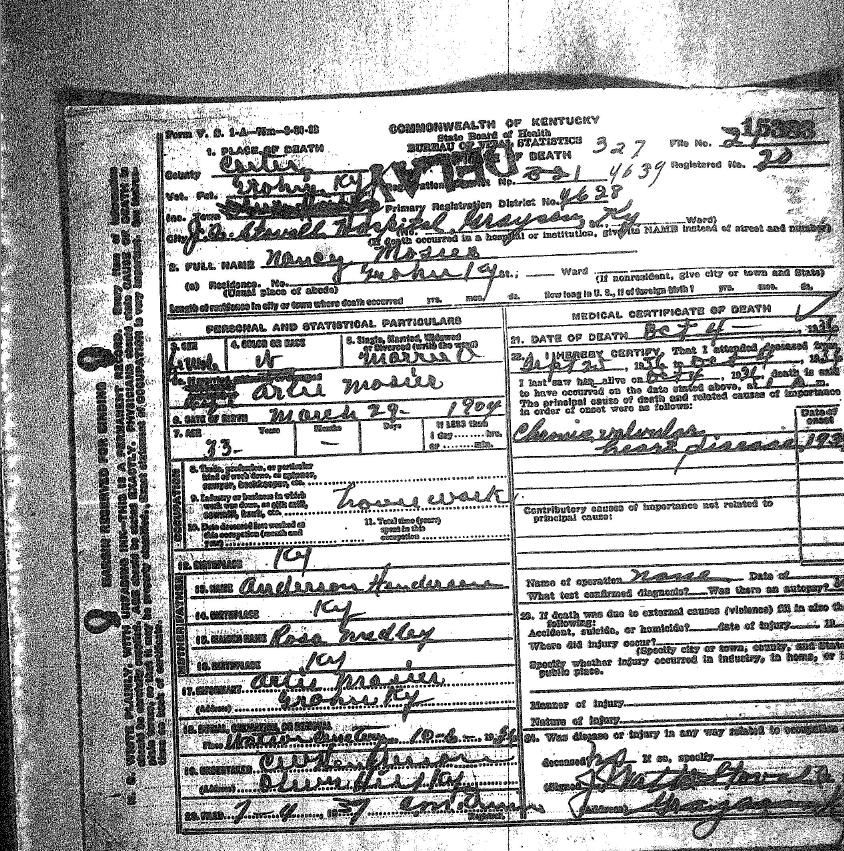 Form V. S. 1-A
COMMONWEALTH OF KENTUCKY
State Board of Health
BUREAU OF VITAL STATISTICS
OF DEATH
DELAY
327
File No. 15383
1. PLACE OF DEATH
County Carter
Registration District No. 4639
Registered No. 20
Vot. Pct. Grahn Ky
Inc. Town
Primary Registration District No. 4638
City Stovall Hospital, Grayson, Ky Ward)
(If death occurred in a hospital or institution, give its NAME instead of street and number)
2. FULL NAME Nancy Mosier
(a) Residence. No. Grahn Ky St., Ward (If nonresident, give city or town and State)
(Usual place of abode)
Length of residence in city or town where death occurred yrs. mos. ds. How long in U. S., if of foreign birth? yrs. mos. ds.
PERSONAL AND STATISTICAL PARTICULARS
3. SEX
4. COLOR OR RACE W
5. Single, Married, Widowed or Divorced (write the word) Married
Artie Mosier
6. DATE OF BIRTH March 29 1904
7. AGE Years Months Days If LESS than 1 day hrs. or min.
33
8. Trade, profession, or particular kind of work done, as spinner, sawyer, bookkeeper, etc.
9. Industry or business in which work was done, as silk mill, sawmill, bank, etc. house work
10. Date deceased last worked at this occupation (month and year)
11. Total time (years) spent in this occupation
12. BIRTHPLACE Ky
13. NAME Anderson Henderson
14. BIRTHPLACE Ky
15. MAIDEN NAME Rosa Medley
16. BIRTHPLACE Ky
17. INFORMANT Artie Mosier
(Address) Grahn Ky
18. BURIAL, CREMATION, OR REMOVAL
Place Cemetery 10-6- 1936
19. UNDERTAKER Henderson
(Address) Olive Hill Ky
20. FILED 7-4 1937 Registrar
MEDICAL CERTIFICATE OF DEATH
21. DATE OF DEATH Oct 4 1936
22. I HEREBY CERTIFY, That I attended deceased from
Sept 25, 1936
I last saw her alive on Oct 4 1936, death is said
to have occurred on the date stated above, at m.
The principal cause of death and related causes of importance
in order of onset were as follows:
Date of onset
Chronic valvular
heart disease
Contributory causes of importance not related to
principal cause:
Name of operation none Date of
What test confirmed diagnosis? Was there an autopsy?
23. If death was due to external causes (violence) fill in also the
following:
Accident, suicide, or homicide? date of injury 19
Where did injury occur?
(Specify city or town, county, and State
Specify whether injury occurred in industry, in home, or in
public place.
Manner of injury
Nature of injury
24. Was disease or injury in any way related to occupation
deceased? no If so, specify
(Signed) J Watts Stovall
(Address) Grayson
MARGIN RESERVED FOR BINDING